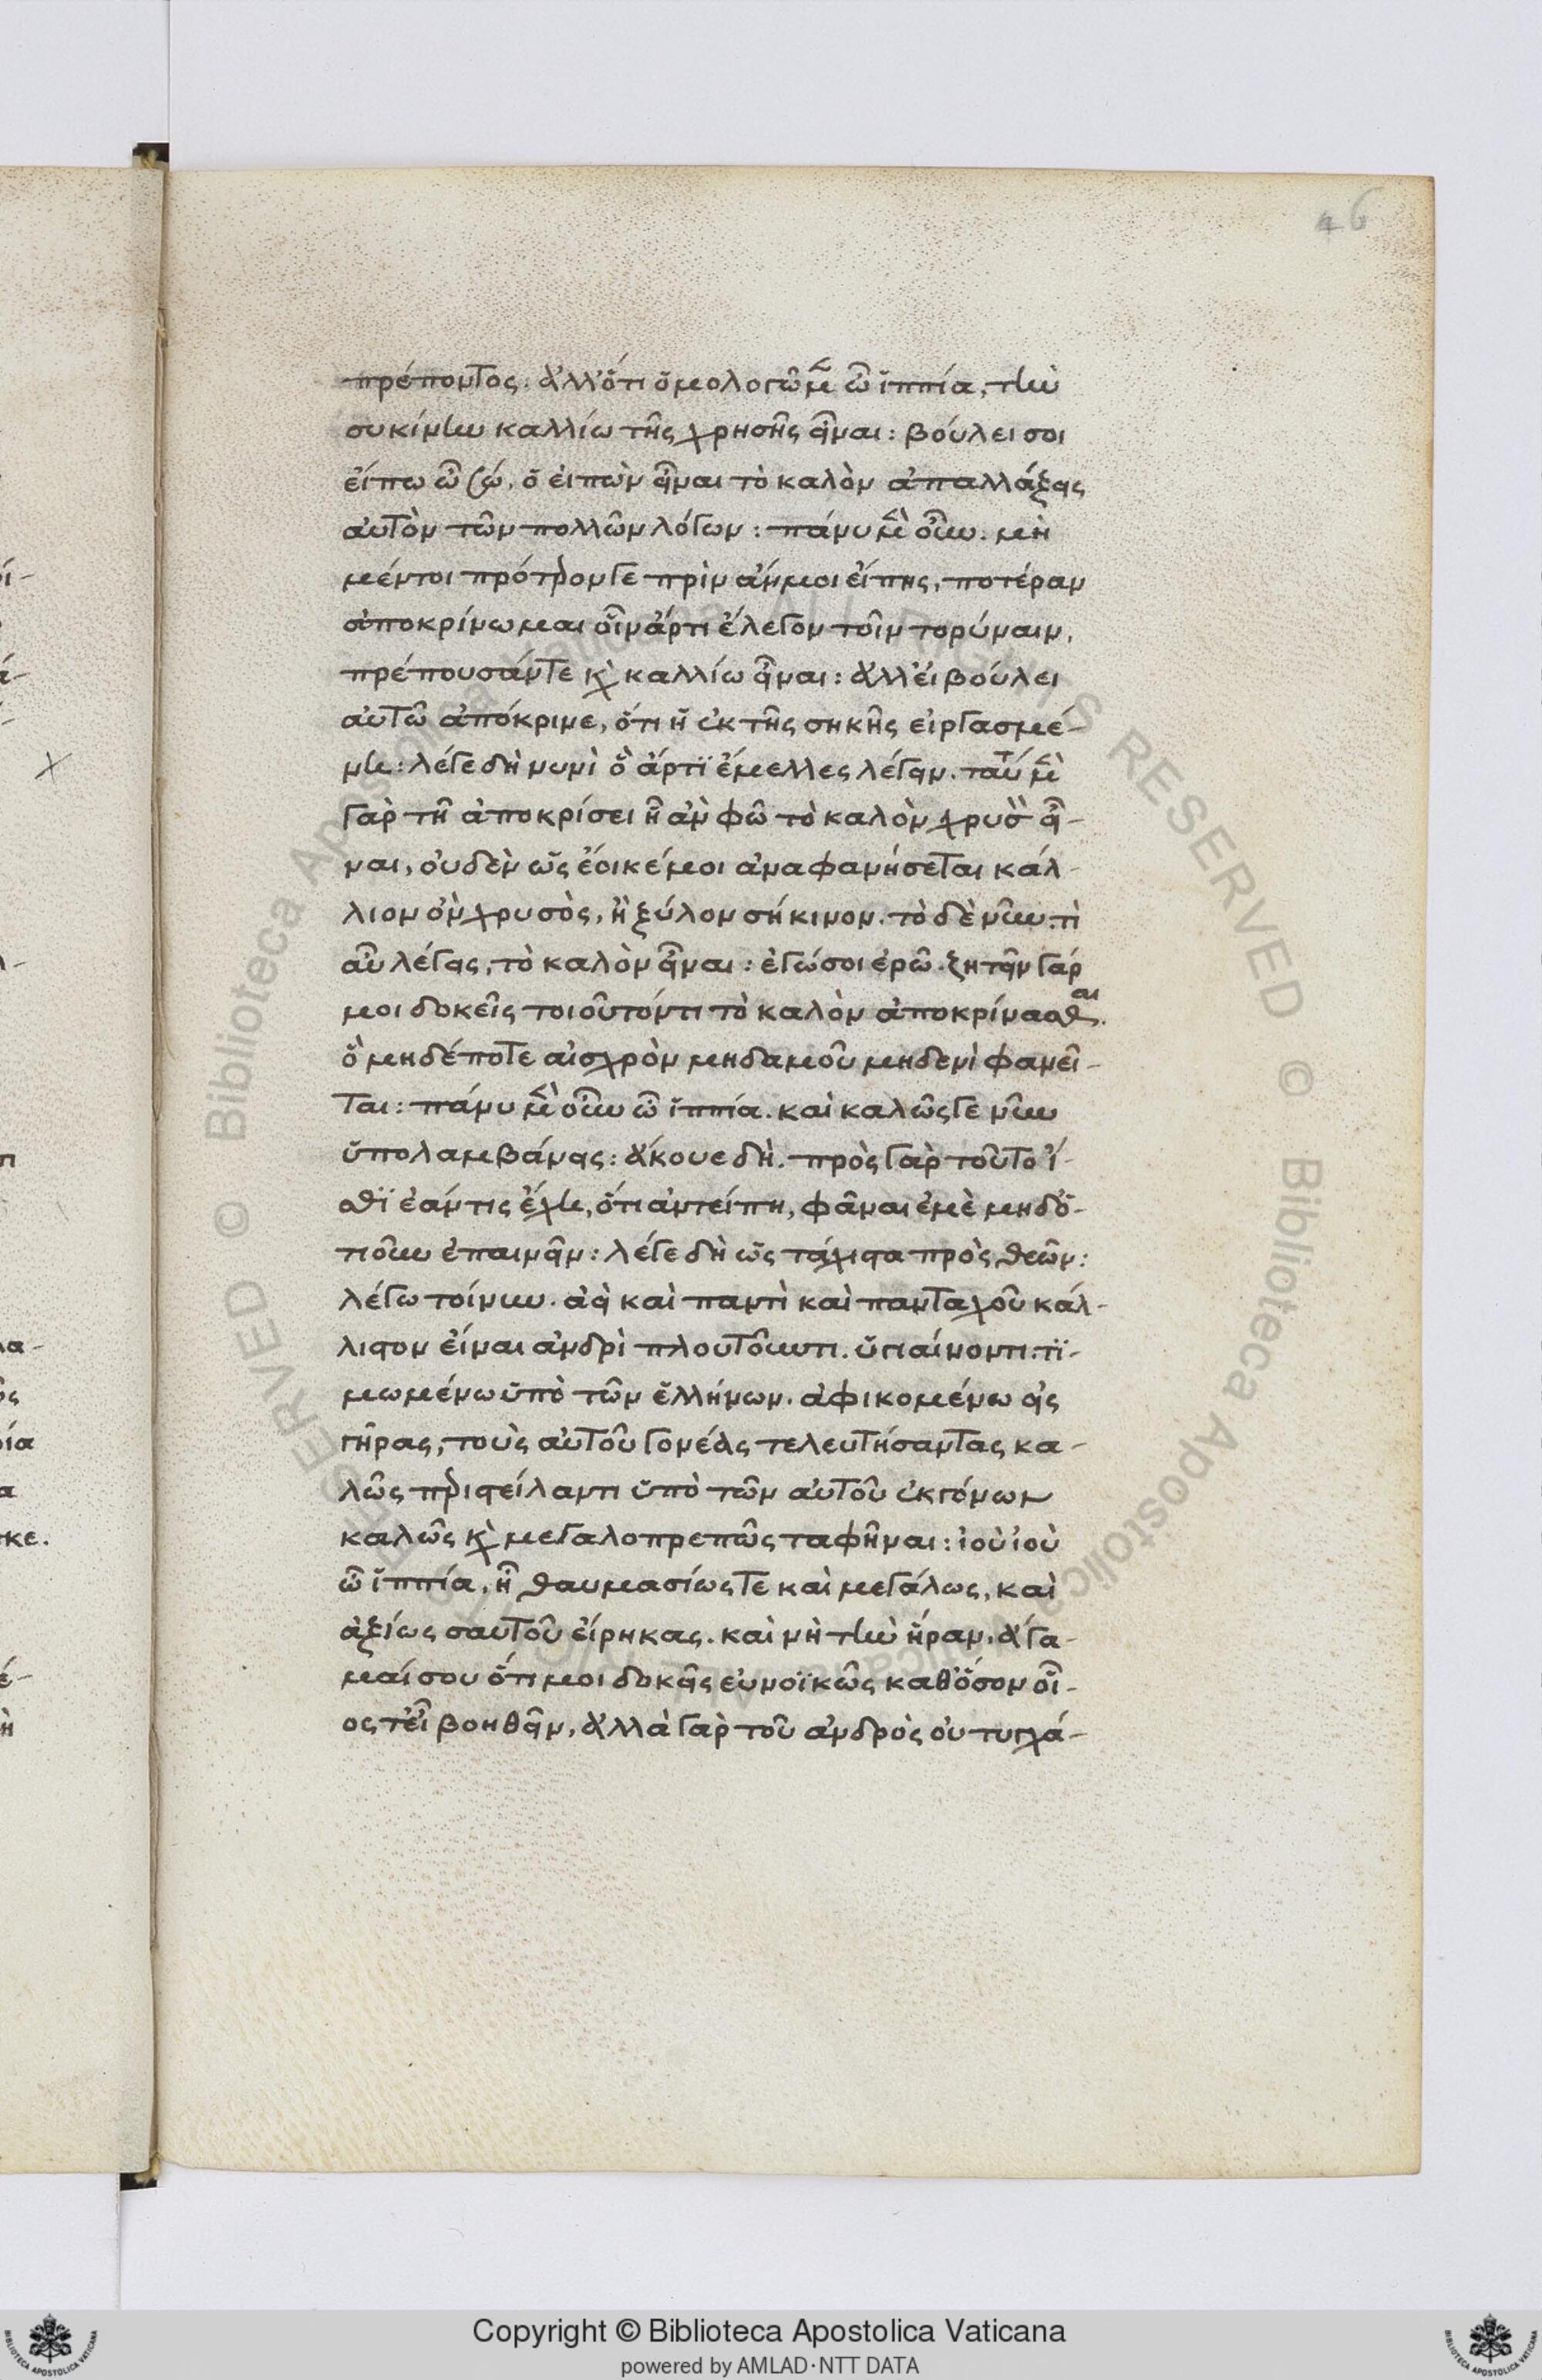 46
πρέποντος. ἀλλ' ὅτι ὁμολογῶμεν ὦ ἱππία, τὴν
συκίνην καλλίω τῆς χρησῆς εἶναι: βούλει σοι
εἴπω ὦ σώ. ὃ εἰπὼν εἶναι τὸ καλὸν ἀπαλλάξεις
αὐτὸν τῶν πολλῶν λόγων: πάνυ μὲν οὖν. μὴ
μέντοι πρότερόν γε πρὶν ἄν μοι εἴπης, ποτέραν
ἀποκρίνωμαι οἷν ἄρτι ἔλεγον τοῖν τορύναιν,
πρέπουσάν τε κ καλλίω εἶναι: ἀλλ' εἰ βούλει
αὐτῶ ἀπόκρινε, ὅτι ἡ ἐκ τῆς σηκῆς εἰργασμέ-
νη: λέγε δὴ νυνὶ ὃ ἄρτϊ ἔμελλες λέγειν. ταύτ μὲν
γὰρ τῆ ἀποκρίσει ἧ ἂν φῶ τὸ καλὸν χρυσὸν εἶ-
ναι, οὐδὲν ὡς ἔοικέ μοι ἀναφανήσεται κάλ-
λιον ὂν χρυσὸς, ἢ ξύλον σήκινον. τὸ δὲ νῦν τὶ
αὖ λέγεις, τὸ καλὸν εἶναι: ἐγώ σοι ἐρῶ. ζητεῖν γάρ
μοι δοκεῖς τοιοῦτόν τι τὸ καλὸν ἀποκρίνασθαι.
ὃ μηδέποτε αἰσχρὸν μηδαμοῦ μηδενὶ φανεῖ-
ται: πάνυ μὲν οὖν ὦ ἱππία. καὶ καλῶς γε νῦν
ὑπολαμβάνεις: ἄκουε δὴ. πρὸς γὰρ τοῦτο ἴ-
σθϊ ἐάν τις ἔχη, ὅτι ἀντείπη, φάναι ἐμὲ μηδ' ὁ-
τιοῦν ἐπαινεῖν: λέγε δὴ ὡς τάχιστα πρὸς θεῶν:
λέγω τοίνυν. ἀεὶ καὶ παντὶ καὶ πανταχοῦ κάλ-
λιστον εἶναι ἀνδρὶ πλουτοῦντι. ὑγιαίνοντι. τϊ-
μωμένω ὑπὸ τῶν ἑλλήνων. ἀφικομένω εἰς
γῆρας, τοὺς αὐτοῦ γονέας τελευτήσαντας κα-
λῶς περιστείλαντι ὑπὸ τῶν αὐτοῦ ἐκγόνων
καλῶς κ μεγαλοπρεπῶς ταφῆναι: ἰοὺ ἰοὺ
ὦ ἱππία, ἦ θαυμασίως τε καὶ μεγάλως, καὶ
ἀξίως σαυτοῦ εἴρηκας. καὶ νὴ τὴν ἥραν, ἄγα-
μαί σου ὅτι μοι δοκεῖς εὐνοϊκῶς καθ' ὅσον οἷ-
ος τ' εἶ βοηθεῖν, ἀλλὰ γὰρ τοῦ ἀνδρὸς οὐ τυγχά-
Copyright © Biblioteca Apostolica Vaticana
powered by AMLAD·NTT DATA